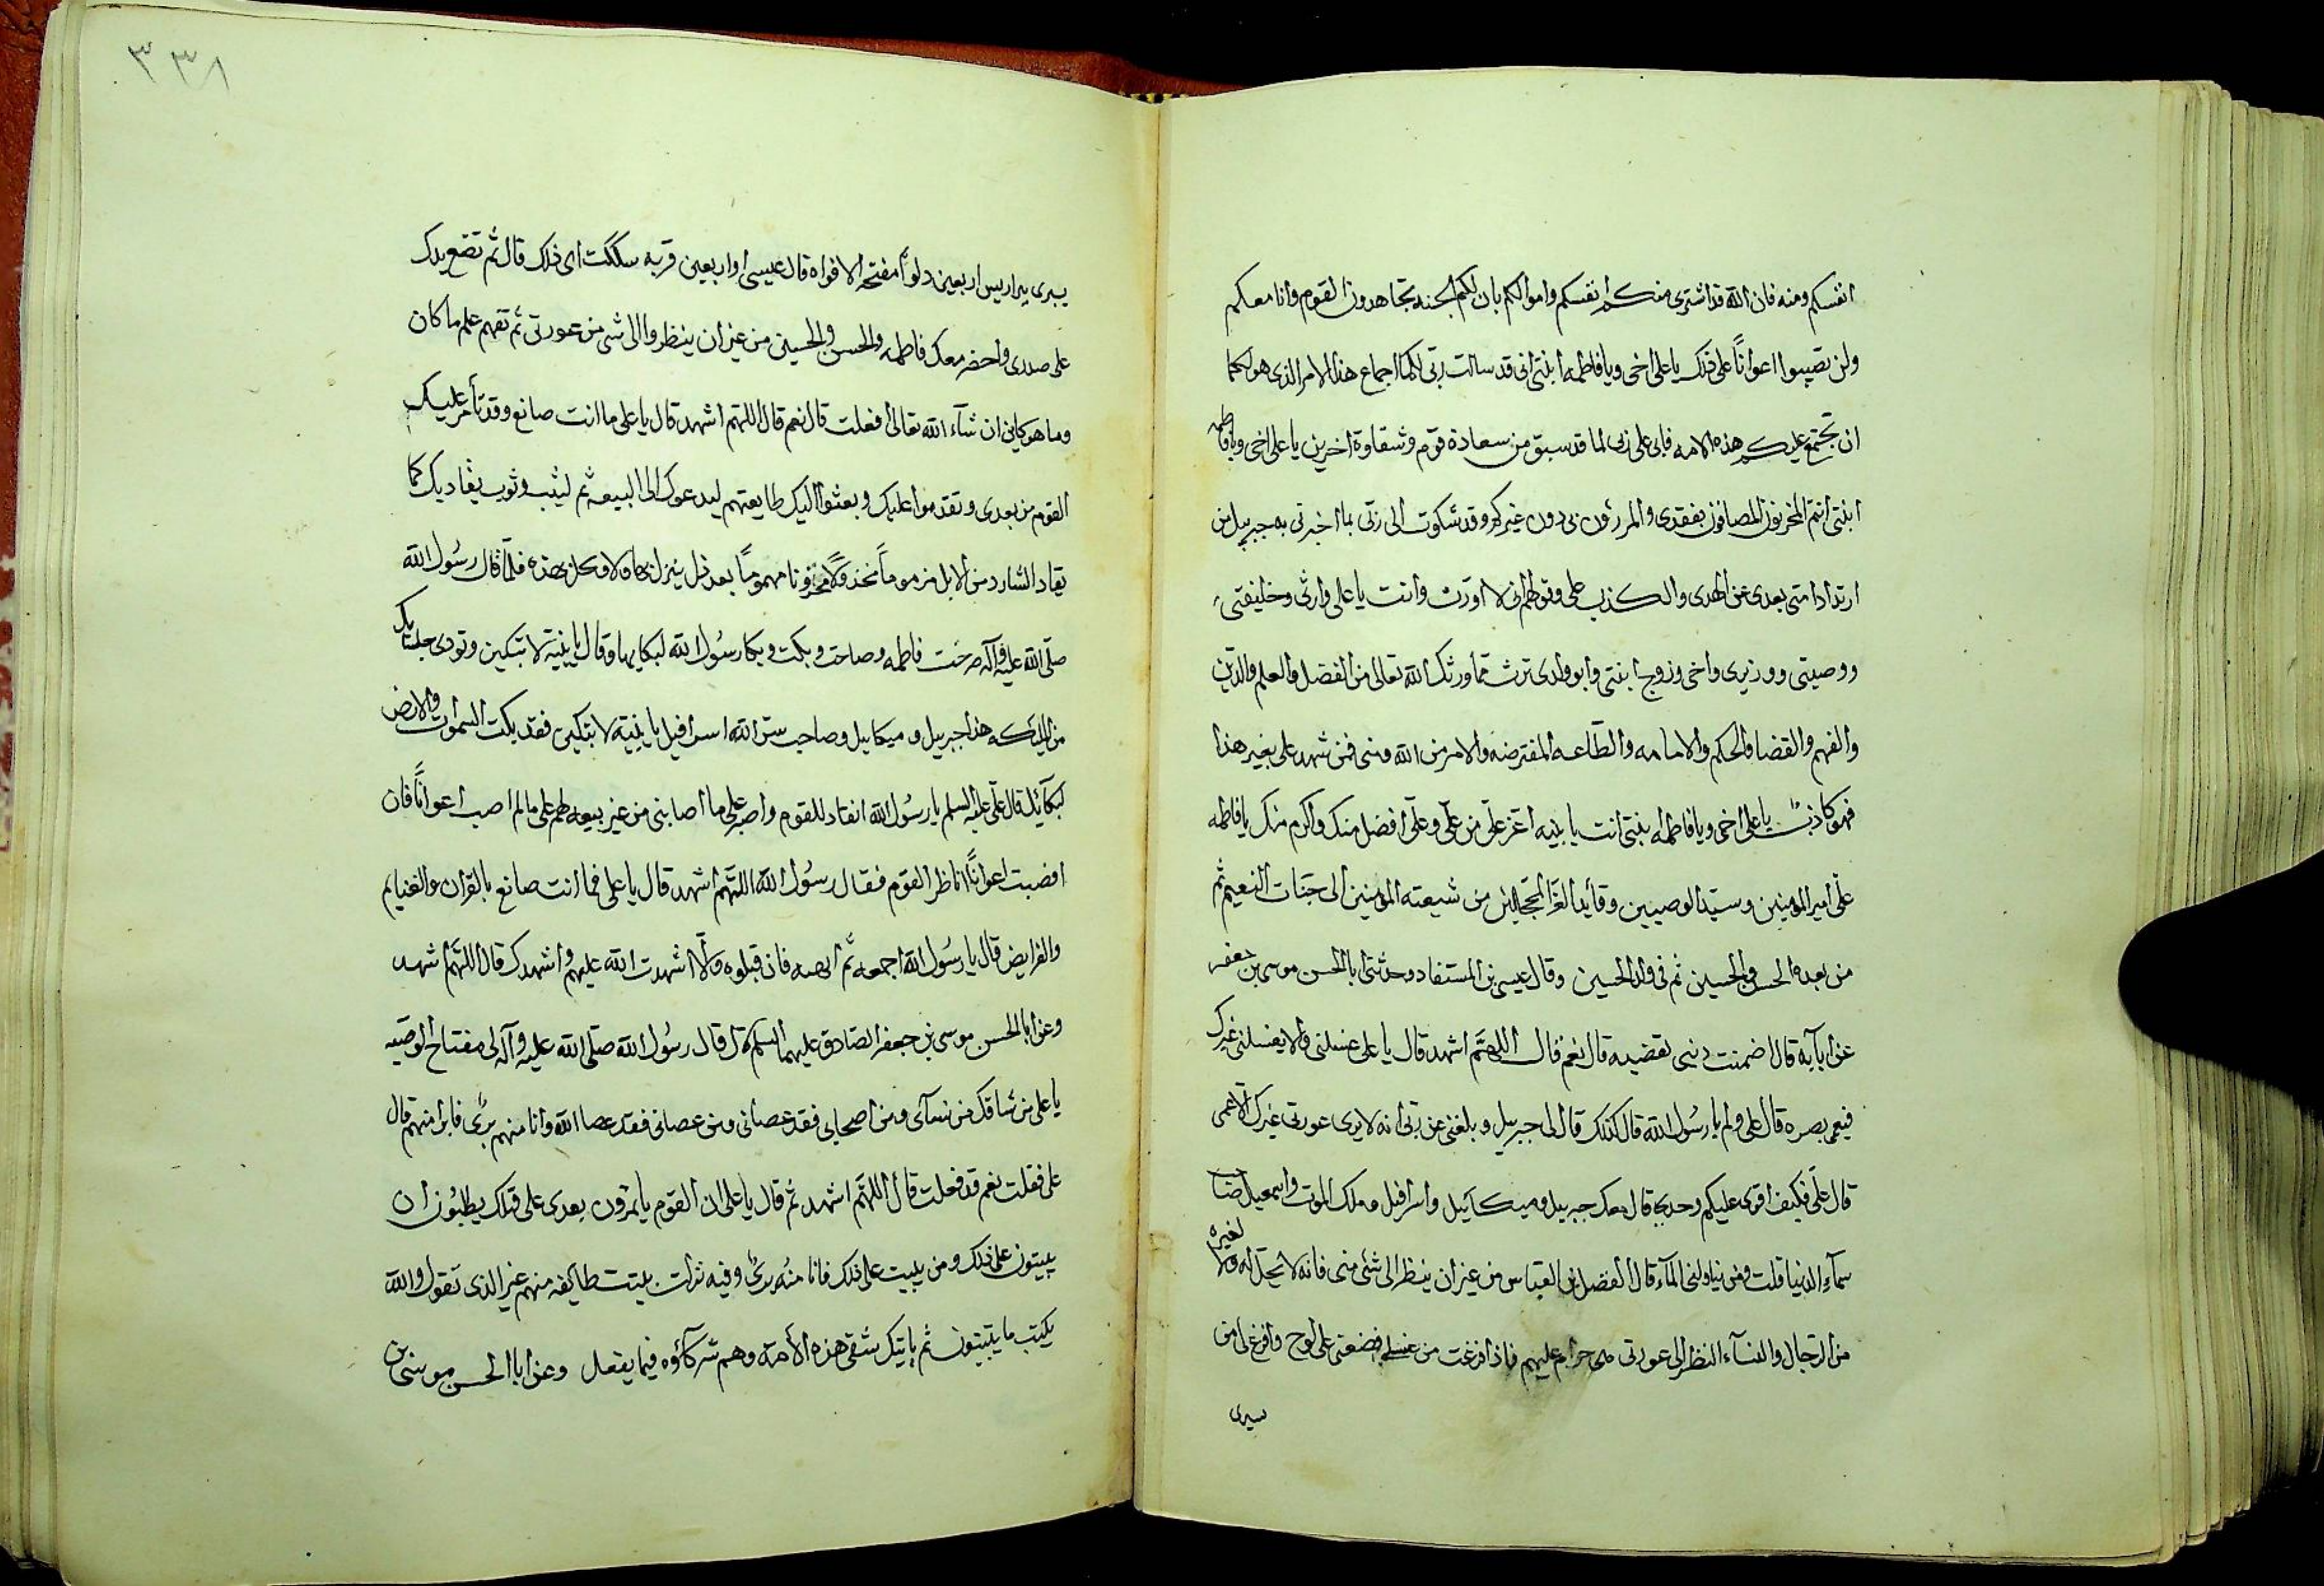 انفسكم ومنه فان الله قد اشترى منكم انفسكم واموالكم بان لكم الجنه تجاهدون القوم وانا معكم
ولن تصيبوا اعوانًا على ذلك يا على اخى ويا فاطمه ابنتى انى قد سالت ربى لكما اجماع هذا الامر الذى هو لكما
ان تجتمع عليكم هذه الامه فابى على ربى لما قد سبق من سعادة قوم وشقاوة اخرين يا على اخى ويا فاطمه
ابنتى انتم المحزنون المصافون بفقدى والمرزؤن بى دون غيركم وقد شكوت الى ربّى بما اخبرتى به جبرييل من
ارتداد امتى بعدى عن الهدى والكذب على وقولهم انى لا اورث وانت يا على وارثى وخليفتى
ووصيتى ووزيرى واخى وزوج ابنتى وابو ولدى ترث مما ورثك الله تعالى من الفضل والعلم والدّين
والفهم والقضا والحكم والامامه والطاعه المفترضه والامر من الله ومنى فمن شهد على بغير هذا
فهو كاذبٌ يا على اخى ويا فاطمه بنتى انت يا بنيه اعز علىّ من علّى وعلّى افضل منك واكرم منك يا فاطمه
علّى امير المؤمنين وسيّد الوصيين وقايد الغرّ المحجلين من شيعته المؤمنين الى جنات النعيم ثم
من بعده الحسن والحسين ثم فى ولد الحسين وقال عيسى بن المستفاد وحدثنى ابا الحسن موسى بن جعفر
عن ابآيه قال اضمنت دينى تقضيه قال نعم قال اللهمّ اشهد قال يا على غسلنى ولا يغسلنى غيرك
فيعمى بصره قال على ولم يا رسُول الله قال كذلك قال لى جبرييل وبلغنى عن ربّى انه لا يرى عورتى غيرك الّا عمى
قال علّى فكيف اقوى عليكم وحدى قال معك جبرييل وميكآييل واسرافيل وملك الموت واسمعيل صاحب
سمآء الدنيا قلت ومن يناولنى المآء قال الفضل بن العباس من غير ان ينظر الى شئ منى فانه لا تحل له ولا لغيره
من الرجال والنسآء النظر الى عورتى هى حرام عليهم فاذا فرغت من غسلى فضعنى على لوح وافرغ على من
سيرى
٣٣٨
بيرى بير اريس اربعين دلوًا مفتحه الافواه قال عيسى او اربعين قربه سككت اى ذلك قال ثم تضع يدك
على صدرى واحضر معك فاطمه والحسن والحسين من غير ان ينظروا الى شى من عورتى ثم تفهم علم ما كان
وما هو كاين ان شآء الله تعالى افعلت قال نعم قال اللهّم اشهد قال يا على ما انت صانع وقد تامر عليك
القوم من بعدى وتقدموا عليك وبعثوا اليك طايعتهم ليدعوك الى البيعه ثم ليثب وثوب يقاديك كما
يقاد الشارد من الابل مزموماً مخذولًا محزونا مهمومًا بعد ذل ينزل بها ولا وكل بهذه فلمّا قال رسُول الله
صلّى الله عليه وآله صرخت فاطمه وصاحت وبكت وبكا رسُول الله لبكايها وقال يا بنيّة لا تبكين وتوذى جلسائك
من الملائكه هذا جبرييل وميكاييل وصاحب سرّ الله اسرافيل يا بنيّة لا تبكين فقد بكت السموات والارض
لبكآئك قال علّى عليه السلم يا رسُول الله انقاد للقوم واصبر على ما اصابنى من غير بيعه لهم على مالم اصب اعوانًا فان
اصبت اعوانًا اناظر القوم فقال رسُول الله اللهّم اشهد قال يا على فما انت صانع بالقران والغنايم
والفرايض قال يا رسُول الله اجمعه ثم اتيهم به فان قبلوه والّا اشهدت الله عليهم واشهدك قال اللهّم اشهد
وعن ابا الحسن موسى بن جعفر الصادق عليهما السلم قال قال رسُول الله صلّى الله عليه وآله لى مفتاح الوصيه
يا على من شاقك من نسآى ومن اصحابى فقد عصانى ومن عصانى فقد عصا الله وانا منهم برئ فابرا منهم قال
على فقلت نعم قد فعلت قال اللهّم اشهد ثم قال يا على ان القوم ياتمرون بعدى على قتلك يطلبُون ان
يبيتون على ذلك ومن يبيت على ذلك فانا منُه برئ وفيه نزلت بيتت طايفه منهم غير الذى تقول والله
يكتب ما يبيتون ثم ياتيك شقى هذه الأمة وهم شركآؤه فيما يفعل وعن ابا الحسن موسى بن